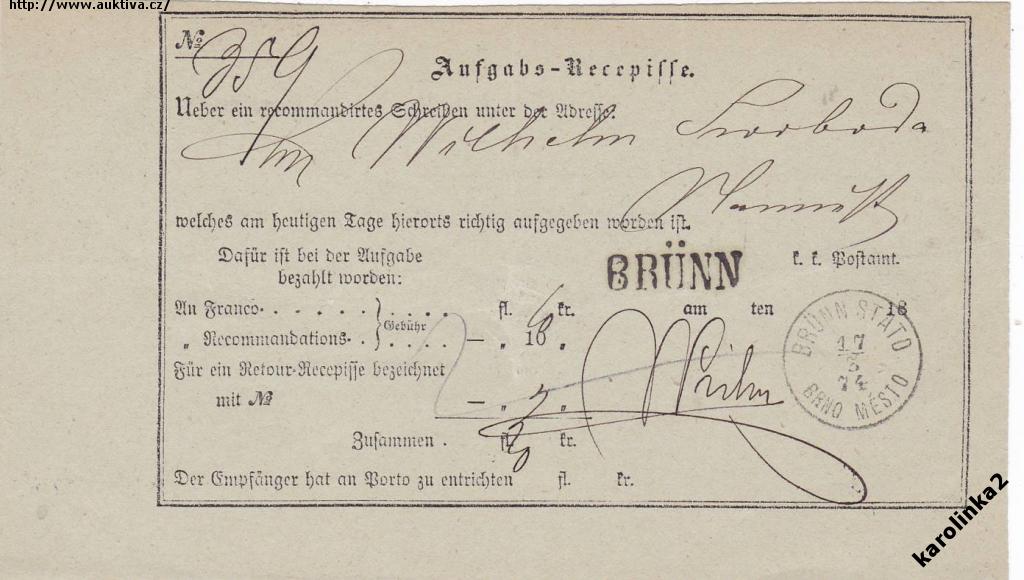 http://www.auktiva.cz/
№ 359
Aufgabs-Recepisse.
Ueber ein recommandirtes Schreiben unter der Adresse:
Wilhelm Swoboda
welches am heutigen Tage hierorts richtig aufgegeben worden ist.
Dafür ist bei der Aufgabe
bezahlt worden:
BRÜNN
k. k. Postamt.
An Franco . . . . . . . . . . fl. kr.
am ten 18
„ Recommandations . . . . . . — „ 10 „
Gebühr
Für ein Retour-Recepisse bezeichnet
mit № — „ „
Zusammen . fl. kr.
Der Empfänger hat an Porto zu entrichten fl. kr.
BRÜNN STADT
17
74
BRNO MĚSTO
karolinka2